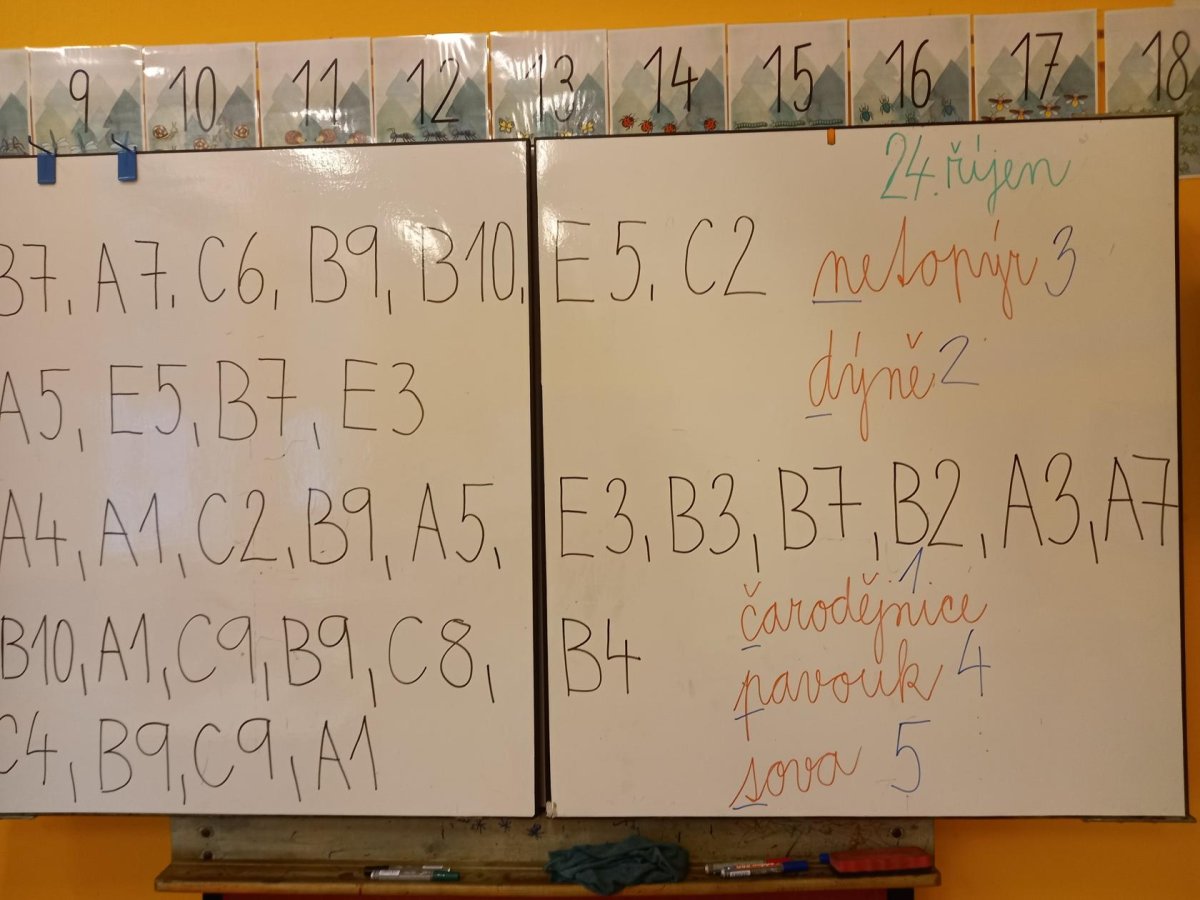 9 10 11 12 13 14 15 16 17 18
24. říjen
B7, A7, C6, B9, B10, E5, C2 netopýr 3
A5, E5, B7, E3 dýně 2
A4, A1, C2, B9, A5, E3, B3, B7, B2, A3, A7
čarodějnice 1
B10, A1, C9, B9, C8, B4 pavouk 4
C4, B9, C9, A1 sova 5